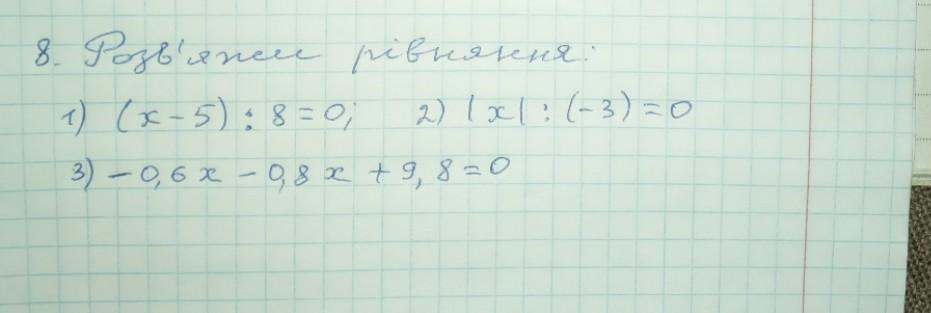 8. Розв'яжи рівняння:
1) (x-5) : 8 = 0; 2) |x| : (-3) = 0
3) -0,6x - 0,8x + 9,8 = 0